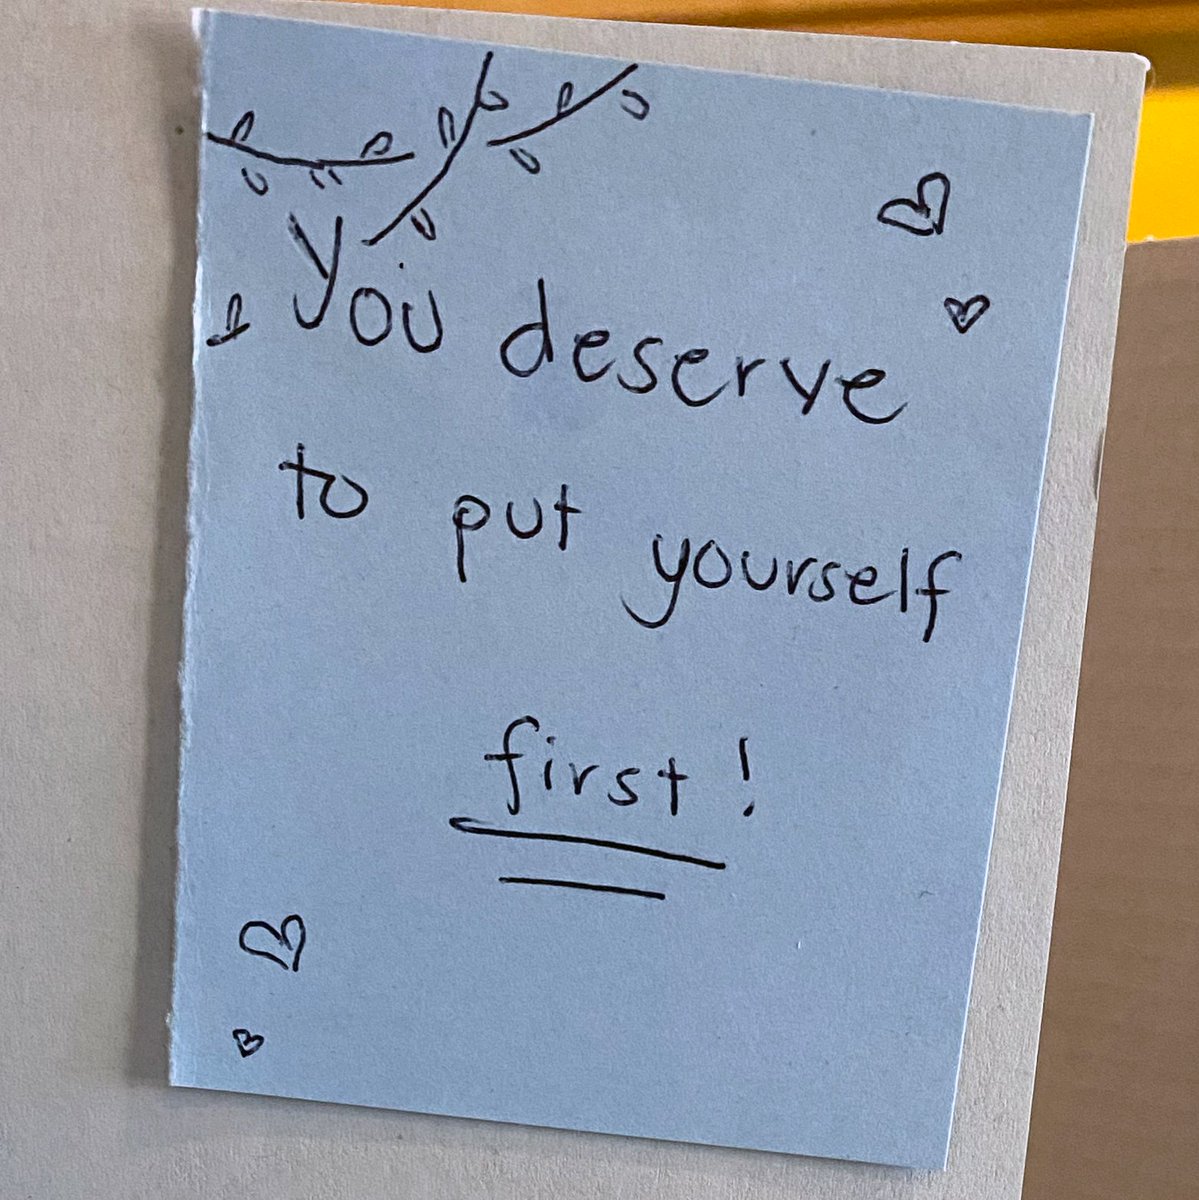 You deserve
to put yourself
first!